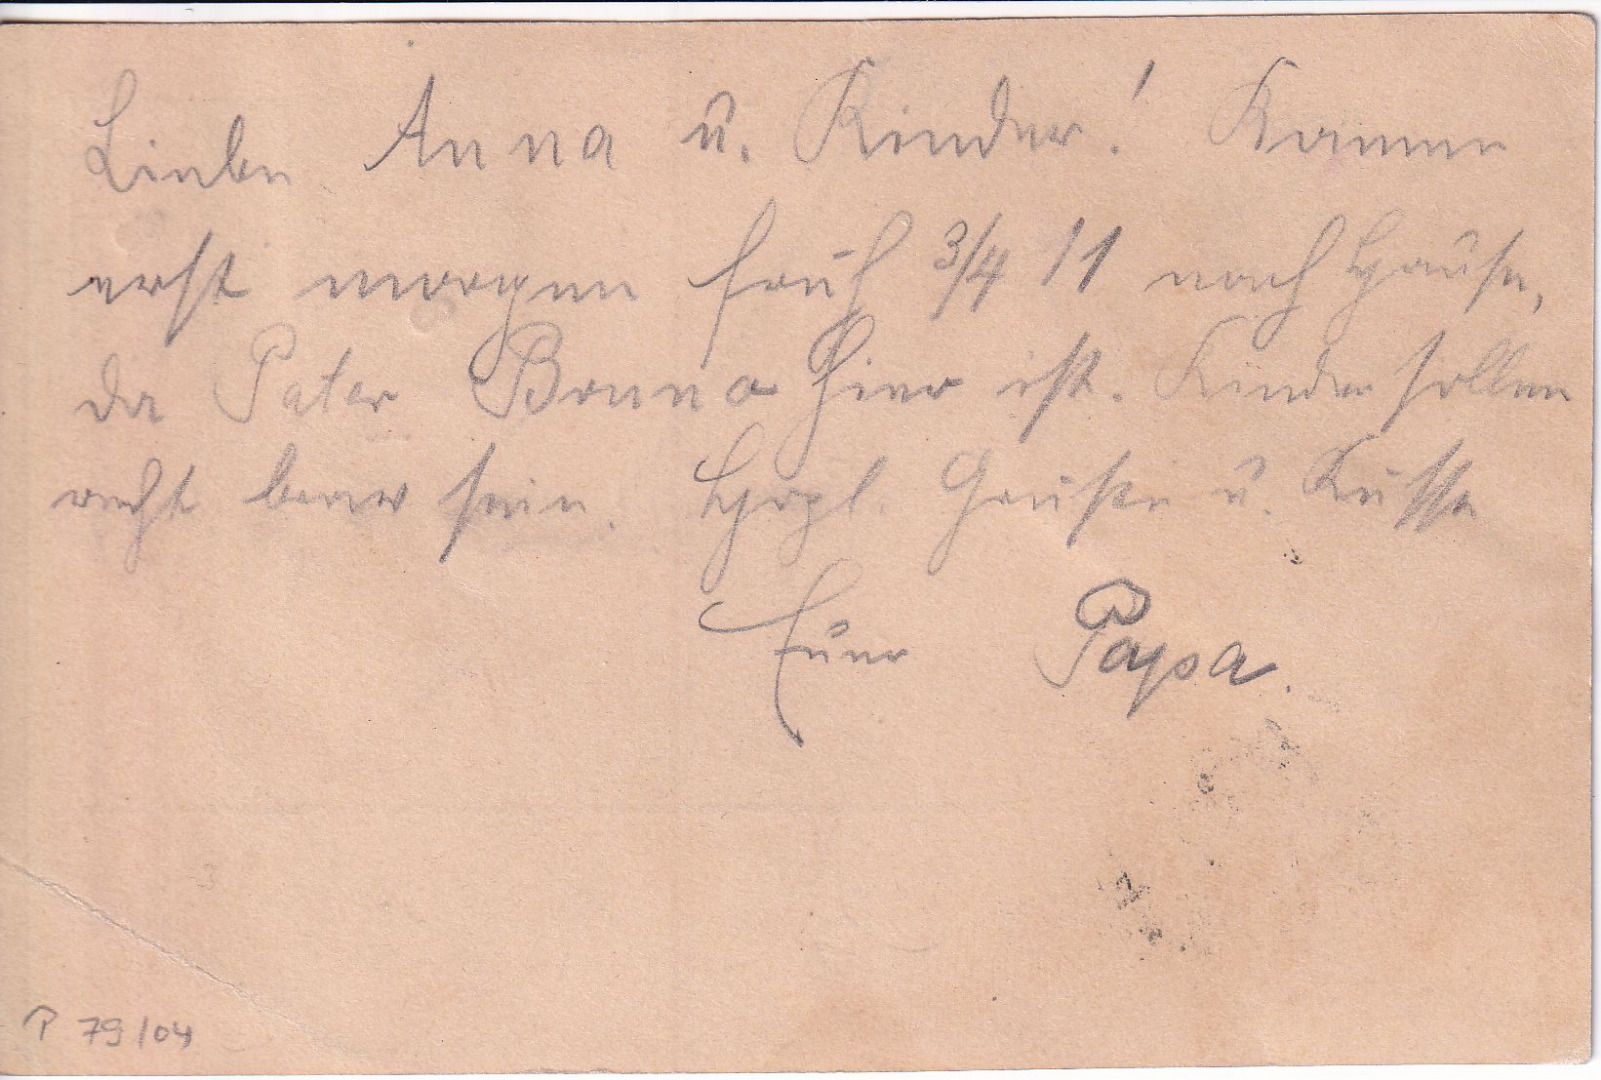 Liebe Anna u. Kinder! Komme
erst morgen früh 3/4 11 nach Hause,
da Pater Bruno hier ist. Kinder sollen
recht brav sein. Herzl. Grüße u. Küsse
Euer Papa.
P 79/04